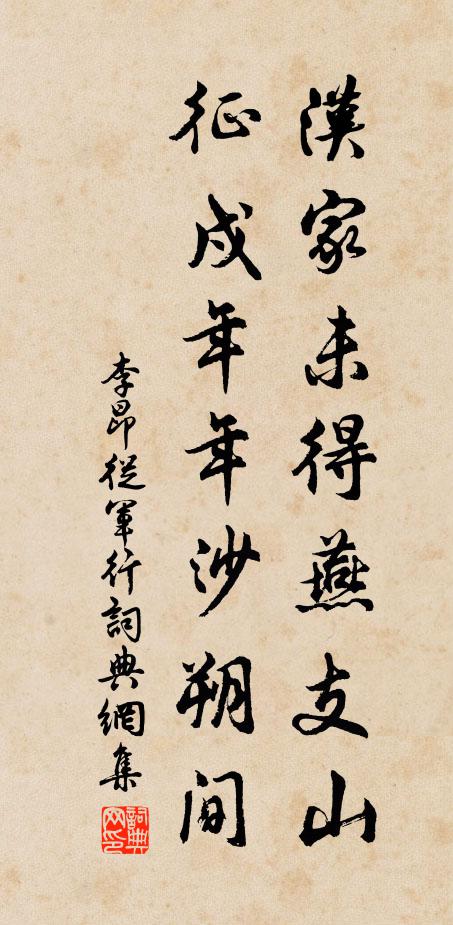 漢家未得燕支山
征戍年年沙朔間
李昂從軍行詞典網集
詞典網印